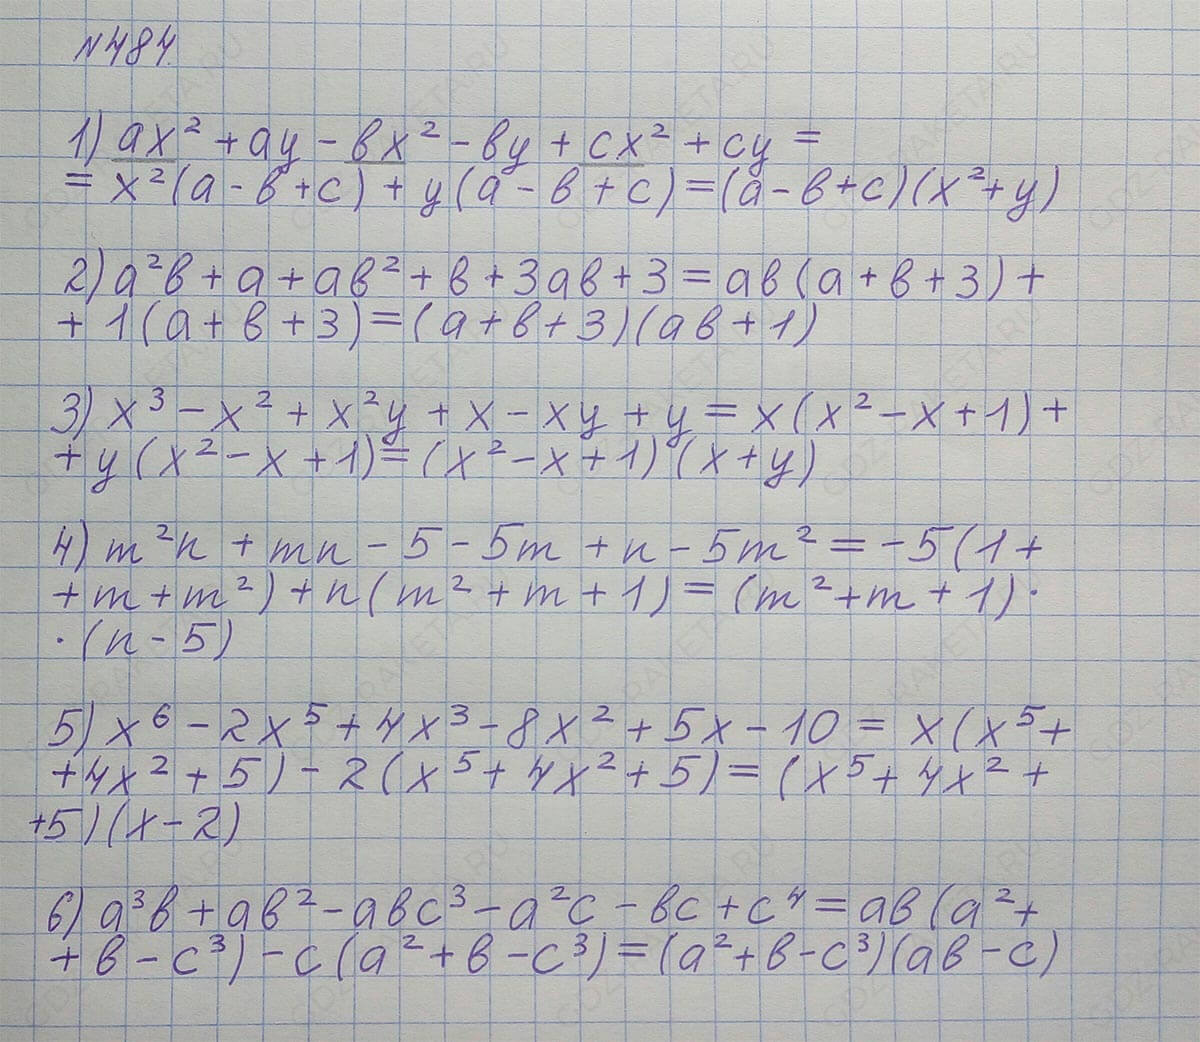 №484.
1) ax² + ay - bx² - by + cx² + cy =
= x²(a - b + c) + y(a - b + c) = (a - b + c)(x² + y)
2) a²b + a + ab² + b + 3ab + 3 = ab(a + b + 3) +
+ 1(a + b + 3) = (a + b + 3)(ab + 1)
3) x³ - x² + x²y + x - xy + y = x(x² - x + 1) +
+ y(x² - x + 1) = (x² - x + 1)(x + y)
4) m²n + mn - 5 - 5m + n - 5m² = -5(1 +
+ m + m²) + n(m² + m + 1) = (m² + m + 1) ·
· (n - 5)
5) x⁶ - 2x⁵ + 4x³ - 8x² + 5x - 10 = x(x⁵ +
+ 4x² + 5) - 2(x⁵ + 4x² + 5) = (x⁵ + 4x² +
+ 5)(x - 2)
6) a³b + ab² - abc³ - a²c - bc + c⁴ = ab(a² +
+ b - c³) - c(a² + b - c³) = (a² + b - c³)(ab - c)